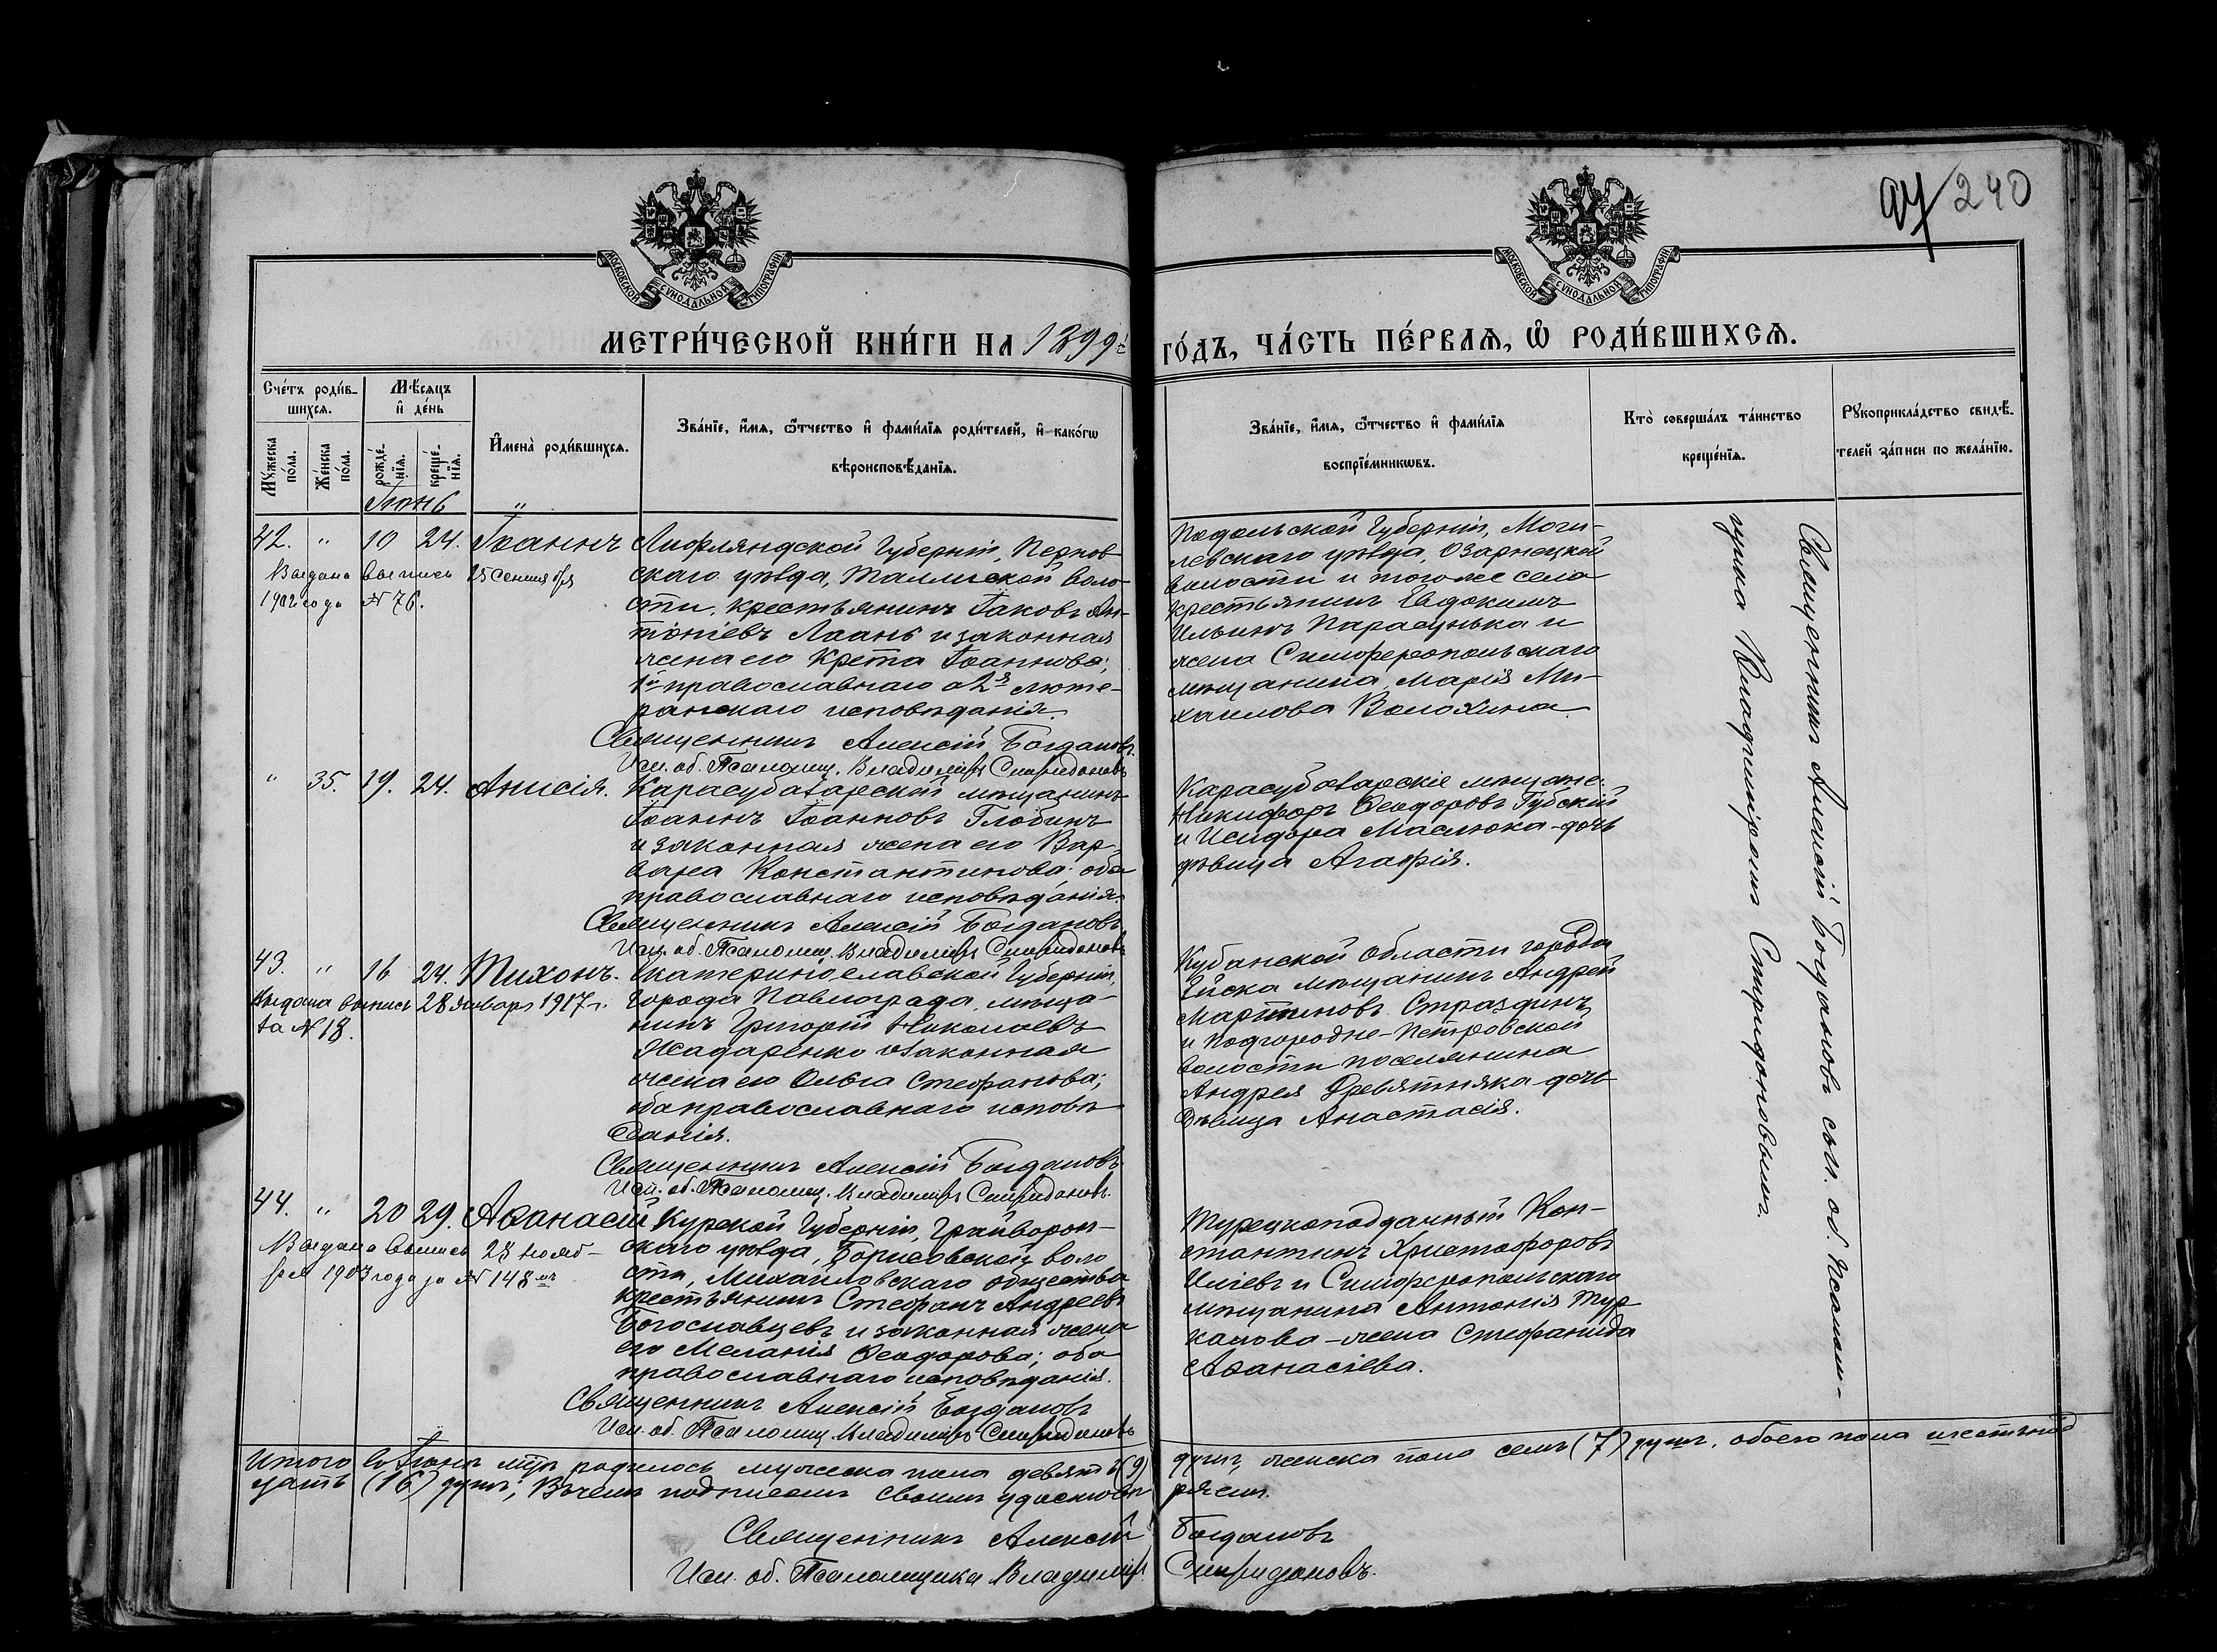 97 240
МОСКОВСКОЙ СѴНОДАЛЬНОЙ ТИПОГРАФІИ
МОСКОВСКОЙ СѴНОДАЛЬНОЙ ТИПОГРАФІИ
МЕТРИ́ЧЕСКОЙ КНИ́ГИ НА 1899 г. ГО́ДЪ, ЧА́СТЬ ПЕ́РВАЯ, Ѡ РОДИ́ВШИХСЯ.
Сче́тъ роди́в-
шихся.
Му́жеска по́ла.
Же́нска по́ла.
Мѣ́сяцъ
и де́нь
рожде́-
нїя.
креще́-
нїя.
Имена̀ роди́вшихся.
Зва́нїе, и́мя, ѻ́тчество и фами́лїя роди́телей, и како́гѡ
вѣроисповѣ́данїя.
Зва́нїе, и́мя, ѻ́тчество и фами́лїя
воспрїе́мникѡвъ.
Кто̀ соверша́лъ та́инство
креще́нїя.
Рꙋкоприкла́дство свидѣ́-
телей за́писи по жела́нїю.
Іюнь "
42. " 10 24. Іоаннъ
Выдана выпись 25 Сентября
1902 года № 76.
Лифляндской Губерніи, Пернов-
скаго уѣзда, Таллиской воло-
сти, крестьянинъ Іаковъ Ан-
тоніевъ Лаань и законная
жена его Крета Іоаннова;
1й православнаго а 2я люте-
ранскаго исповѣданія.
Священникъ Алексій Богдановъ.
Исп. об. Псаломщ. Владиміръ Спиридоновъ
Подольской Губерніи, Моги-
левскаго уѣзда, Озаринецкой
волости и того же села
крестьянинъ Евдокимъ
Ильинъ Парасунька и
жена Симферопольскаго
мѣщанина Марія Ми-
хаилова Волохина.
" 35. 19. 24. Анисія.
Карасубазарскій мѣщанинъ
Іоаннъ Іоанновъ Глобинъ
и законная жена его Вар-
вара Константинова; оба
православнаго исповѣданія.
Священникъ Алексій Богдановъ
Исп. об. Псаломщ. Владиміръ Спиридоновъ
Карасубазарскіе мѣщане:
Никифоръ Ѳеодоровъ Губскій
и Исидора Маслюка-дочь
дѣвица Агафія.
43. " 16 24. Тихонъ.
Выдана выпись 28 Января 1917 г.
за № 18.
Екатеринославской Губерніи,
города Павлограда, мѣща-
нинъ Григорій Николаевъ
Жадаренко и законная
жена его Ольга Стефанова;
оба православнаго исповѣ-
данія.
Священникъ Алексій Богдановъ
Исп. об. Псаломщ. Владиміръ Спиридоновъ.
Кубанской области города
Ейска мѣщанинъ Андрей
Мартиновъ Страздинъ
и Подгородне-Петровской
волости поселянина
Андрея Древятняка-дочь
Дѣвица Анастасія.
44. " 20 29. Аѳанасій
Выдана выпись 28 нояб-
ря 1903 года за № 148мъ
Курской Губерніи, Грайворон-
скаго уѣзда, Борисовской воло
сти, Михайловскаго общества
крестьянинъ Стефанъ Андреевъ
Богославцевъ и законная жена
его Меланія Ѳеодорова; оба
православнаго исповѣданія.
Священникъ Алексій Богдановъ
Исп. об. Псаломщ. Владиміръ Спиридоновъ
Турецкоподданный Кон-
стантинъ Христофоровъ
Иліевъ и Симферопольскаго
мѣщанина Антонія Тур-
калова-жена Стефанида
Аѳанасіева.
Священникъ Алексій Богдановъ съ и. об. псалом-
щика Владиміромъ Спиридоновымъ.
Итого въ Іюнѣ м-цѣ родилось мужеска пола девять (9) душъ, женска пола семь (7) душъ, обоего пола шестьнад
цать (16) душъ; Въ чемъ подписомъ своимъ удостовѣ ряемъ.
Священникъ Алексій Богдановъ
Исп. об. Псаломщика Владиміръ Спиридоновъ.